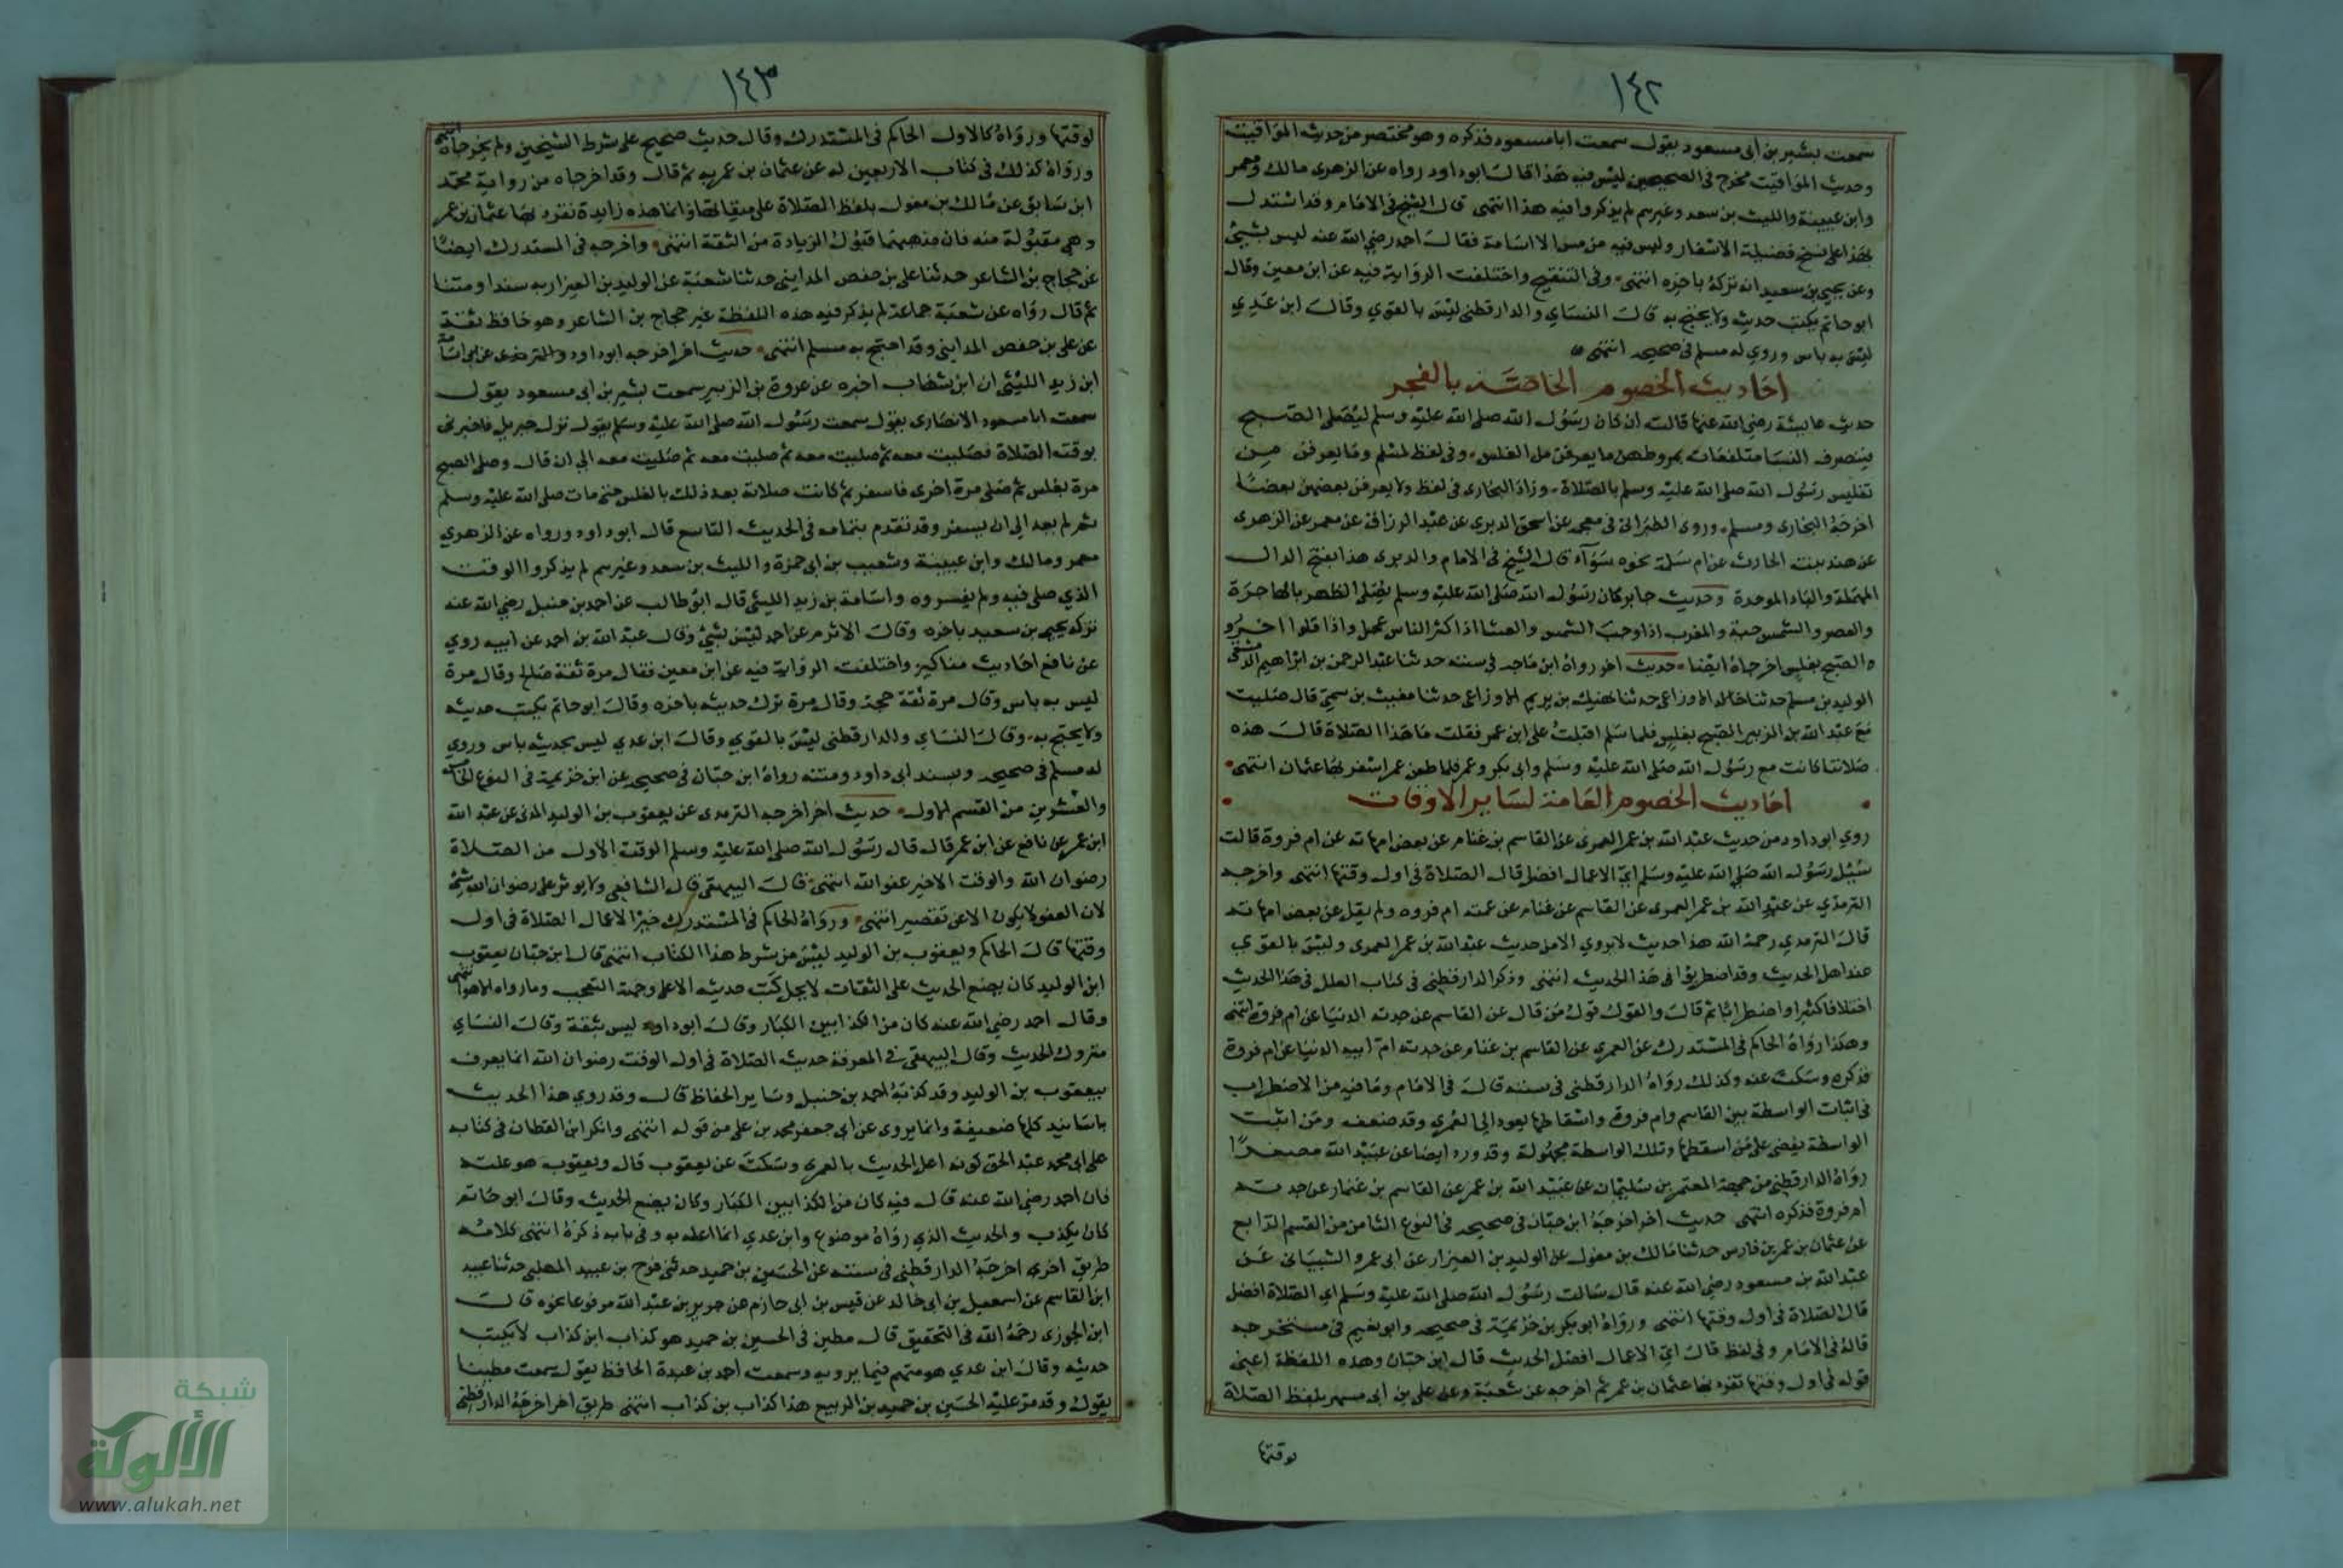 ١٤٢
سمعت بشير بن أبى مسعود يقول سمعت ابا مسعود فذكره وهو مختصر من حديث المواقيت
وحديث المواقيت مخرج فى الصحيحين ليس فيه هذا قال ابو داود رواه عن الزهرى مالك ومعمر
وابن عيينة والليث بن سعد وغيرهم لم يذكروا فيه هذا انتهى قال الشيخ فى الامام وقد استدل
بهذا على نسخ فضيلة الاسفار وليس فيه من مس الا اسامة فقال احمد رضي الله عنه ليس بشئ
وعن يحيى بن سعيد انه تركه باخره انتهى وفى التنقيح واختلفت الرواية فيه عن ابن معين وقال
ابو حاتم يكتب حديثه ولا يحتج به قال النساي والدارقطنى ليس بالقوي وقال ابن عدي
ليس به باس وروي له مسلم فى صحيحه انتهى
احاديث الخصوم الخاصة بالفجر
حديث عايشة رضي الله عنها قالت ان كان رسول الله صلى الله عليه وسلم ليصلى الصبح
فينصرف النسا متلفعات بمروطهن ما يعرفن من الغلس وفى لفظ لمسلم وما يعرفن من
تغليس رسول الله صلى الله عليه وسلم بالصلاة وزاد البخارى فى لفظ ولا يعرفن بعضهن بعضا
اخرجه البخارى ومسلم وروى الطبرانى فى معجمه عن اسحق الدبرى عن عبد الرزاق عن معمر عن الزهرى
عن هند بنت الحارث عن ام سلمة نحوه سوآء قال الشيخ فى الامام والدبرى هذا بفتح الدال
المهملة والباء الموحدة وحديث جابر كان رسول الله صلى الله عليه وسلم يصلى الظهر بالهاجرة
والعصر والشمس حية والمغرب اذا وجبت الشمس والعشا اذا كثر الناس عجل واذا قلوا اخر
والصبح بغلس اخرجاه ايضا حديث اخر رواه ابن ماجه فى سننه حدثنا عبد الرحمن بن ابراهيم الدمشقى
الوليد بن مسلم حدثنا الاوزاعى حدثنا نهيك بن يريم الاوزاعى حدثنا مغيث بن سمى قال صليت
مع عبد الله بن الزبير الصبح بغلس فلما سلم اقبلت على ابن عمر فقلت ما هذا الصلاة قال هذه
صلاتنا كانت مع رسول الله صلى الله عليه وسلم وابى بكر وعمر فلما طعن عمر اسفر بها عثمان انتهى
احاديث الخصوم العامة لساير الاوقات
روي ابو داود من حديث عبد الله بن عمر العمرى عن القاسم بن غنام عن بعض امهاته عن ام فروة قالت
سئل رسول الله صلى الله عليه وسلم اي الاعمال افضل قال الصلاة فى اول وقتها انتهى واخرجه
الترمذي عن عبد الله بن عمر العمرى عن القاسم بن غنام عن عمته ام فروه ولم يقل عن بعض امهاته
قال الترمذي رحمه الله هذا حديث لا يروي الا من حديث عبد الله بن عمر العمرى وليس بالقوي
عند اهل الحديث وقد اضطربوا فى هذا الحديث انتهى وذكر الدارقطنى فى كتاب العلل فى هذا الحديث
اختلافا كثيرا واضطرابا ثم قال والقول قول من قال عن القاسم عن جدته الدنيا عن ام فروة انتهى
وهكذا رواه الحاكم فى المستدرك عن العمري عن القاسم بن غنام عن جدته ام ابيه الدنيا عن ام فروة
فذكره وسكت عنه وكذلك رواه الدارقطنى فى سننه قال فى الامام وما فيه من الاضطراب
فى اثبات الواسطة بين القاسم وام فروة واسقاطها يعود الى العمري وقد ضعف ومن اثبت
الواسطة يقضى على من اسقطها وتلك الواسطة مجهولة وقد ورد ايضا عن عبيد الله مصغرا
رواه الدارقطنى من جهة المعتمر بن سليمان عن عبيد الله بن عمر عن القاسم بن غنام عن جدته
ام فروة فذكره انتهى حديث اخر اخرجه ابن حبان فى صحيحه فى النوع الثامن من القسم الرابع
عن عثمان بن عمر بن فارس حدثنا مالك بن مغول عن الوليد بن العيزار عن ابى عمرو الشيبانى عن
عبد الله بن مسعود رضي الله عنه قال سالت رسول الله صلى الله عليه وسلم اي الصلاة افضل
قال الصلاة فى اول وقتها انتهى ورواه ابو بكر بن خزيمة فى صحيحه وابو نعيم فى مستخرجه
قاله فى الامام وفى لفظ قال اي الاعمال افضل الحديث قال ابن حبان وهذه اللفظة اعنى
قوله فى اول وقتها تفرد بها عثمان بن عمر ثم اخرجه عن شعبة وعن على بن ابى مسهر بلفظ الصلاة
لوقتها
١٤٣
لوقتها ورواه كالاول الحاكم فى المستدرك وقال حديث صحيح على شرط الشيخين ولم يخرجاه انتهى
ورواه كذلك فى كتاب الاربعين له عن عثمان بن عمر به ثم قال وقد اخرجاه من رواية محمد
ابن سابق عن مالك بن مغول بلفظ الصلاة على ميقاتها وانما هذه زايدة تفرد بها عثمان بن عمر
وهي مقبولة منه فان مذهبهما قبول الزيادة من الثقة انتهى واخرجه فى المستدرك ايضا
عن حجاج بن الشاعر حدثنا على بن حفص المداينى حدثنا شعبة عن الوليد بن العيزار به سندا ومتنا
ثم قال رواه عن شعبة جماعة لم يذكر فيه هذه اللفظة غير حجاج بن الشاعر وهو حافظ ثقة
عن على بن حفص المداينى وقد احتج به مسلم انتهى حديث اخر اخرجه ابو داود والترمذى عن اسامة
ابن زيد الليثى ان ابن شهاب اخبره عن عروة بن الزبير سمعت بشير بن ابى مسعود يقول
سمعت ابا مسعود الانصارى يقول سمعت رسول الله صلى الله عليه وسلم يقول نزل جبريل فاخبرنى
بوقت الصلاة فصليت معه ثم صليت معه ثم صليت معه ثم صليت معه الى ان قال وصلى الصبح
مرة بغلس ثم صلى مرة اخرى فاسفر ثم كانت صلاته بعد ذلك بالغلس حتى مات صلى الله عليه وسلم
ثم لم يعد الى ان يسفر وقد تقدم بتمامه فى الحديث التاسع قال ابو داود ورواه عن الزهري
معمر ومالك وابن عيينة وشعيب بن ابى حمزة والليث بن سعد وغيرهم لم يذكروا الوقت
الذي صلى فيه ولم يفسروه واسامة بن زيد الليثى قال ابو طالب عن احمد بن حنبل رضي الله عنه
تركه يحيى بن سعيد باخره وقال الاثرم عن احمد ليس بشئ وقال عبد الله بن احمد عن ابيه روي
عن نافع احاديث مناكير واختلفت الرواية فيه عن ابن معين فقال مرة ثقة صالح وقال مرة
ليس به باس وقال مرة ثقة حجة وقال مرة ترك حديثه باخره وقال ابو حاتم يكتب حديثه
ولا يحتج به وقال النساي والدارقطنى ليس بالقوي وقال ابن عدي ليس بحديثه باس وروي
له مسلم فى صحيحه وبسند ابى داود ومتنه رواه ابن حبان فى صحيحه عن ابن خزيمة فى النوع الخامس
والعشرين من القسم الاول حديث اخر اخرجه الترمذى عن يعقوب بن الوليد المدنى عن عبد الله
ابن عمر عن نافع عن ابن عمر قال قال رسول الله صلى الله عليه وسلم الوقت الاول من الصلاة
رضوان الله والوقت الاخير عفو الله انتهى قال البيهقى قال الشافعى ولا يوثر على رضوان الله شئ
لان العفو لا يكون الا عن تقصير انتهى ورواه الحاكم فى المستدرك خير الاعمال الصلاة فى اول
وقتها قال الحاكم ويعقوب بن الوليد ليس من شرط هذا الكتاب انتهى قال ابن حبان يعقوب
ابن الوليد كان يضع الحديث على الثقات لا يحل كتب حديثه الا على جهة التعجب وما رواه الا هو انتهى
وقال احمد رضي الله عنه كان من الكذابين الكبار وقال ابو داود ليس بثقة وقال النساي
متروك الحديث وقال البيهقى فى المعرفة حديث الصلاة فى اول الوقت رضوان الله انما يعرف
بيعقوب بن الوليد وقد كذبه احمد بن حنبل وساير الحفاظ قال وقد روي هذا الحديث
باسانيد كلها ضعيفة وانما يروى عن ابى جعفر محمد بن على من قوله انتهى وانكر ابن القطان فى كتابه
على ابى محمد عبد الحق كونه اعل الحديث بالعمرى وسكت عن يعقوب قال ويعقوب هو علته
فان احمد رضي الله عنه قال فيه كان من الكذابين الكبار وكان يضع الحديث وقال ابو حاتم
كان يكذب والحديث الذي رواه موضوع وابن عدي انما اعله به وفى بابه ذكره انتهى كلامه
طريق اخرى اخرجه الدارقطنى فى سننه عن الحسين بن حميد حدثنى فرج بن عبيد المهلبى حدثنا عبيد
ابن القاسم عن اسمعيل بن ابى خالد عن قيس بن ابى حازم عن جرير بن عبد الله مرفوعا نحوه قال
ابن الجوزى رحمه الله فى التحقيق قال مطين فى الحسين بن حميد هو كذاب ابن كذاب لا يكتب
حديثه وقال ابن عدي هو متهم فيما يرويه وسمعت احمد بن عبدة الحافظ يقول سمعت مطينا
يقول وقد مر عليه الحسين بن حميد بن الربيع هذا كذاب بن كذاب انتهى طريق اخر اخرجه الدارقطنى
شبكة
الألوكة
www.alukah.net